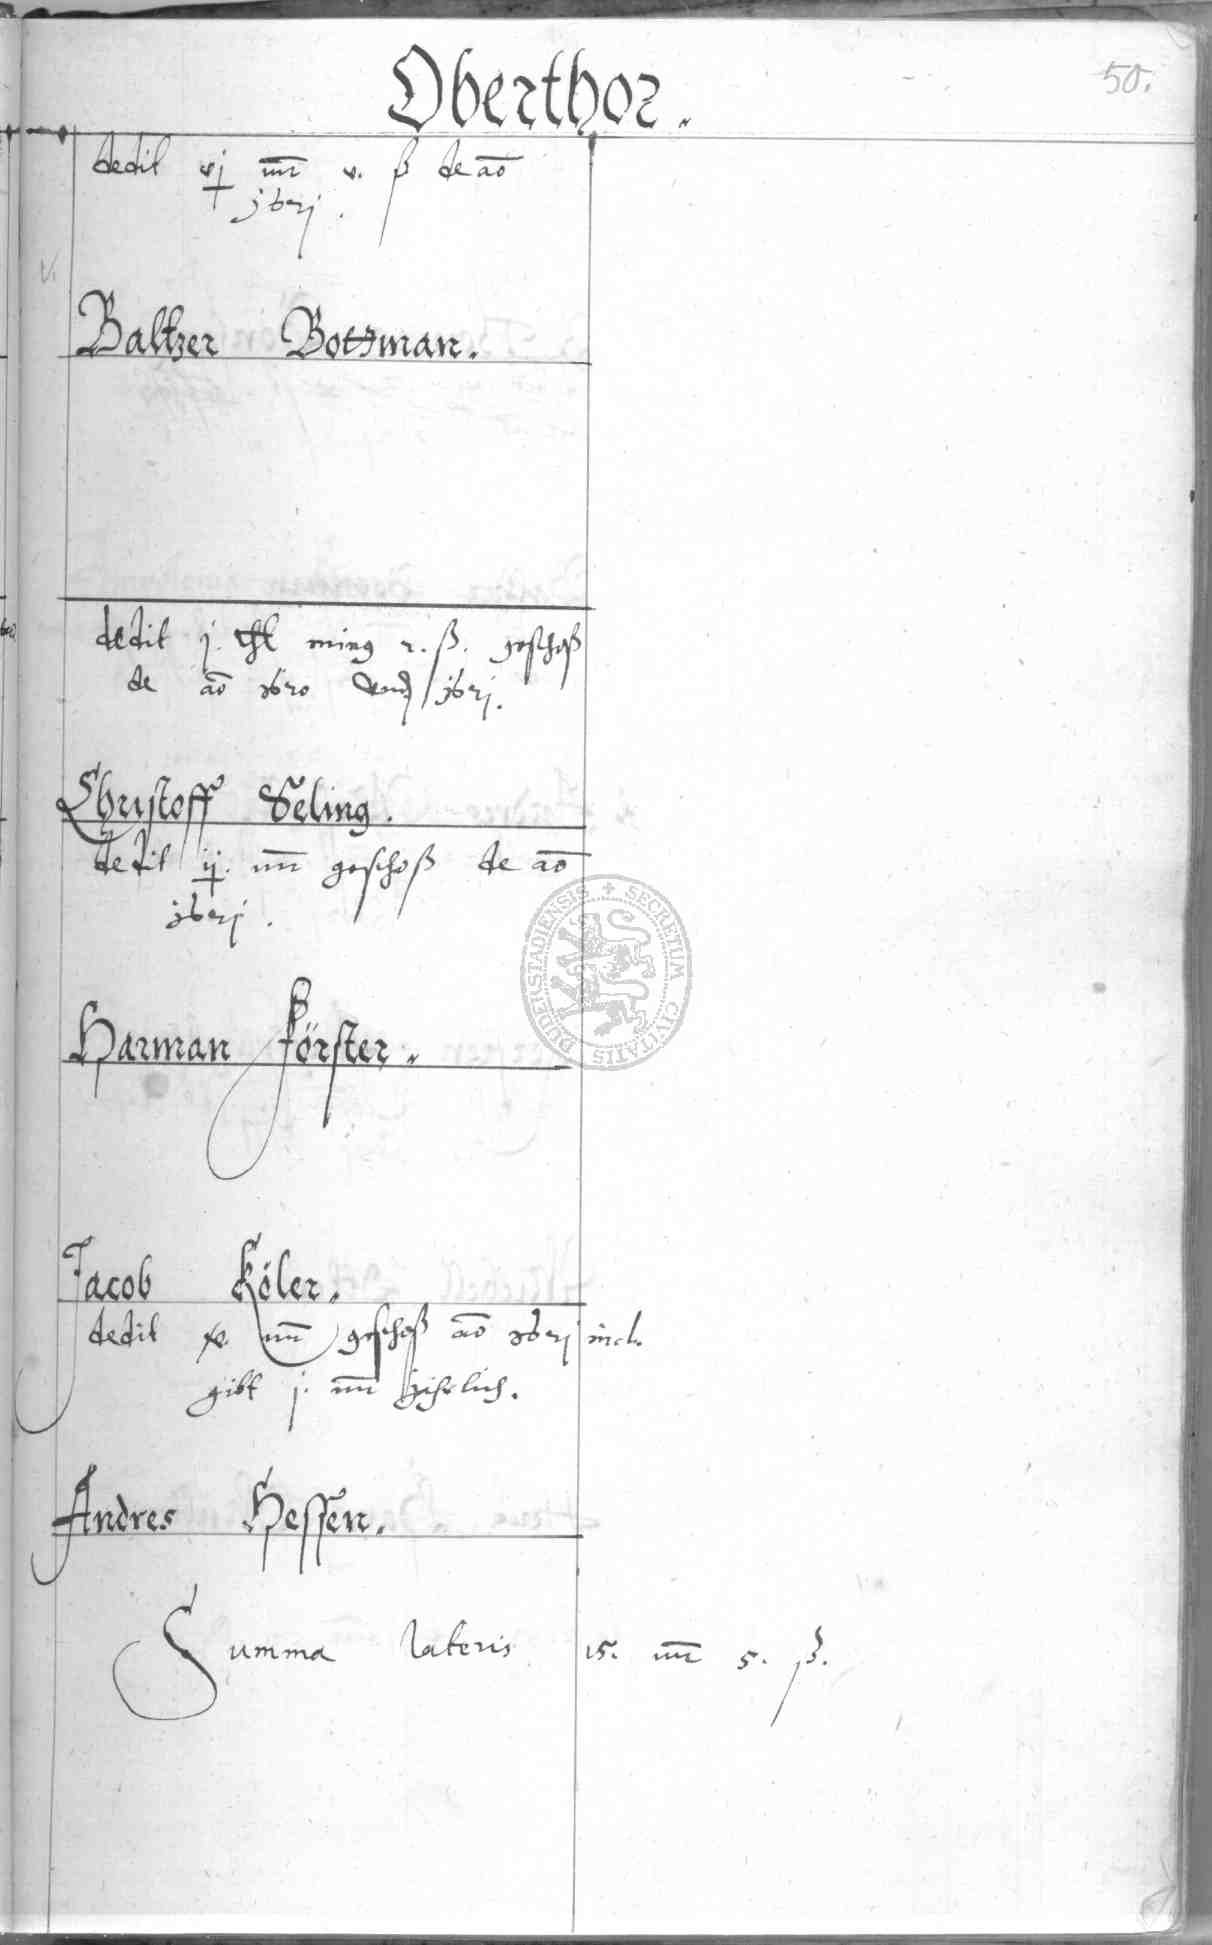 Oberthor.
50.
dedit vj mr v. ß de ao
j6zj.
Baltzer Bottman.
dedit j. thl ming z. ß. geschoß
de ao j6zo vnd j6zj.
Christoff Seling.
dedit ij. mr geschoß de ao
j6zj.
Harman Förster.
Jacob Köler.
dedit x. mr geschoß ao j6zj incl.
gibt j. mr
Andres Hessen.
Summa lateris 15. mr 5. ß.
SECRETUM CIVITATIS DUDERSTADIENSIS